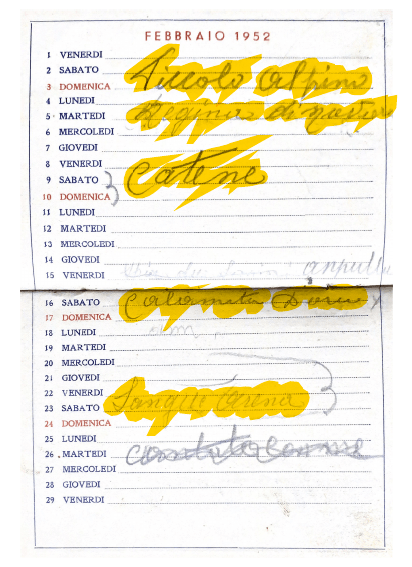 FEBBRAIO 1952
1 VENERDI
2 SABATO Piccolo alpino
3 DOMENICA
4 LUNEDI
5 MARTEDI Regina di
6 MERCOLEDI
7 GIOVEDI
8 VENERDI
9 SABATO Catene
10 DOMENICA
11 LUNEDI
12 MARTEDI
13 MERCOLEDI
14 GIOVEDI
15 VENERDI
16 SABATO Calamita
17 DOMENICA
18 LUNEDI
19 MARTEDI
20 MERCOLEDI
21 GIOVEDI
22 VENERDI
23 SABATO Sangue arena
24 DOMENICA
25 LUNEDI
26 MARTEDI
27 MERCOLEDI
28 GIOVEDI
29 VENERDI